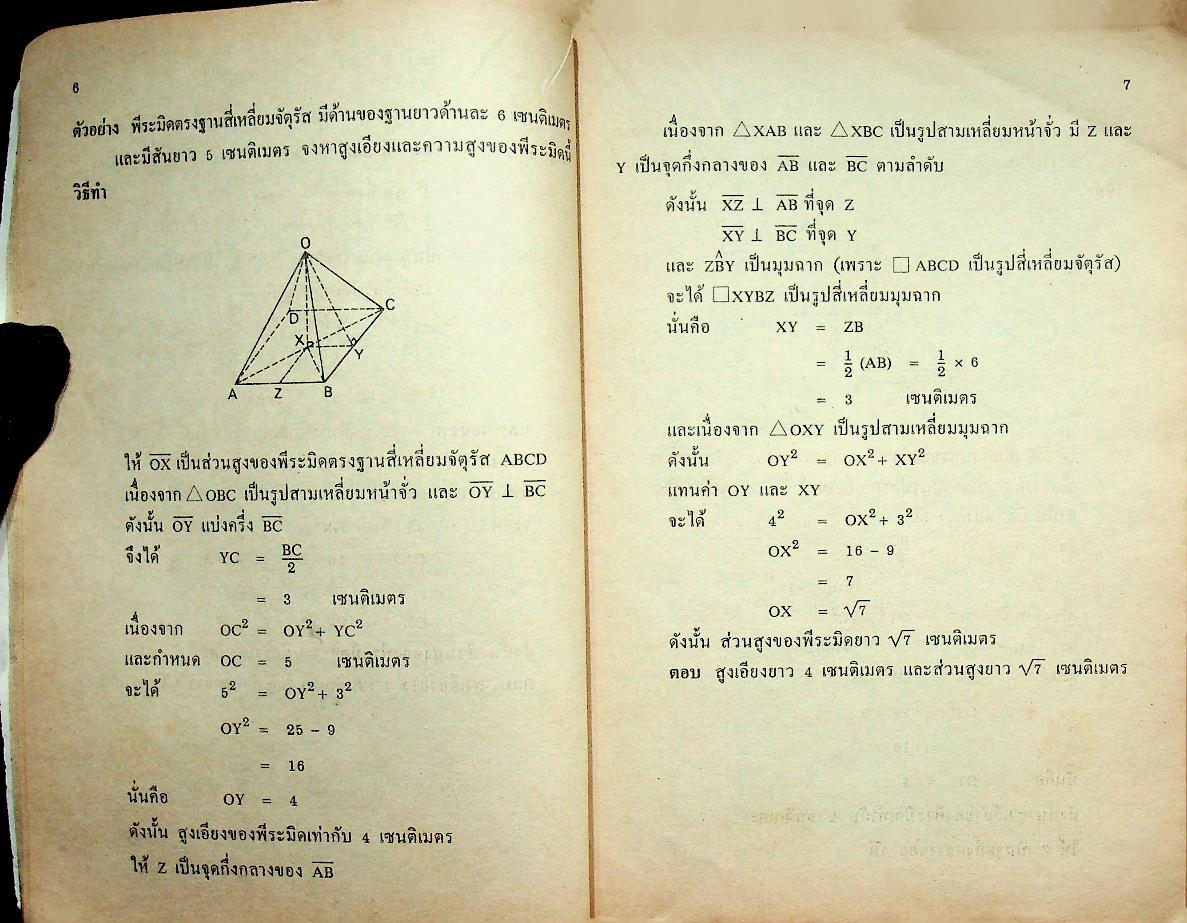 6
ตัวอย่าง พีระมิดตรงฐานสี่เหลี่ยมจัตุรัส มีด้านของฐานยาวด้านละ 6 เซนติเมตร
และมีสันยาว 5 เซนติเมตร จงหาสูงเอียงและความสูงของพีระมิดนี้
วิธีทำ
O
D
C
X
Y
A Z B
ให้ OX เป็นส่วนสูงของพีระมิดตรงฐานสี่เหลี่ยมจัตุรัส ABCD
เนื่องจาก △OBC เป็นรูปสามเหลี่ยมหน้าจั่ว และ OY ⊥ BC
ดังนั้น OY แบ่งครึ่ง BC
จึงได้ YC = BC/2
= 3 เซนติเมตร
เนื่องจาก OC² = OY² + YC²
และกำหนด OC = 5 เซนติเมตร
จะได้ 5² = OY² + 3²
OY² = 25 - 9
= 16
นั่นคือ OY = 4
ดังนั้น สูงเอียงของพีระมิดเท่ากับ 4 เซนติเมตร
ให้ Z เป็นจุดกึ่งกลางของ AB
7
เนื่องจาก △XAB และ △XBC เป็นรูปสามเหลี่ยมหน้าจั่ว มี Z และ
Y เป็นจุดกึ่งกลางของ AB และ BC ตามลำดับ
ดังนั้น XZ ⊥ AB ที่จุด Z
XY ⊥ BC ที่จุด Y
และ ZB̂Y เป็นมุมฉาก (เพราะ □ ABCD เป็นรูปสี่เหลี่ยมจัตุรัส)
จะได้ □XYBZ เป็นรูปสี่เหลี่ยมมุมฉาก
นั่นคือ XY = ZB
= 1/2 (AB) = 1/2 × 6
= 3 เซนติเมตร
และเนื่องจาก △OXY เป็นรูปสามเหลี่ยมมุมฉาก
ดังนั้น OY² = OX² + XY²
แทนค่า OY และ XY
จะได้ 4² = OX² + 3²
OX² = 16 - 9
= 7
OX = √7
ดังนั้น ส่วนสูงของพีระมิดยาว √7 เซนติเมตร
ตอบ สูงเอียงยาว 4 เซนติเมตร และส่วนสูงยาว √7 เซนติเมตร